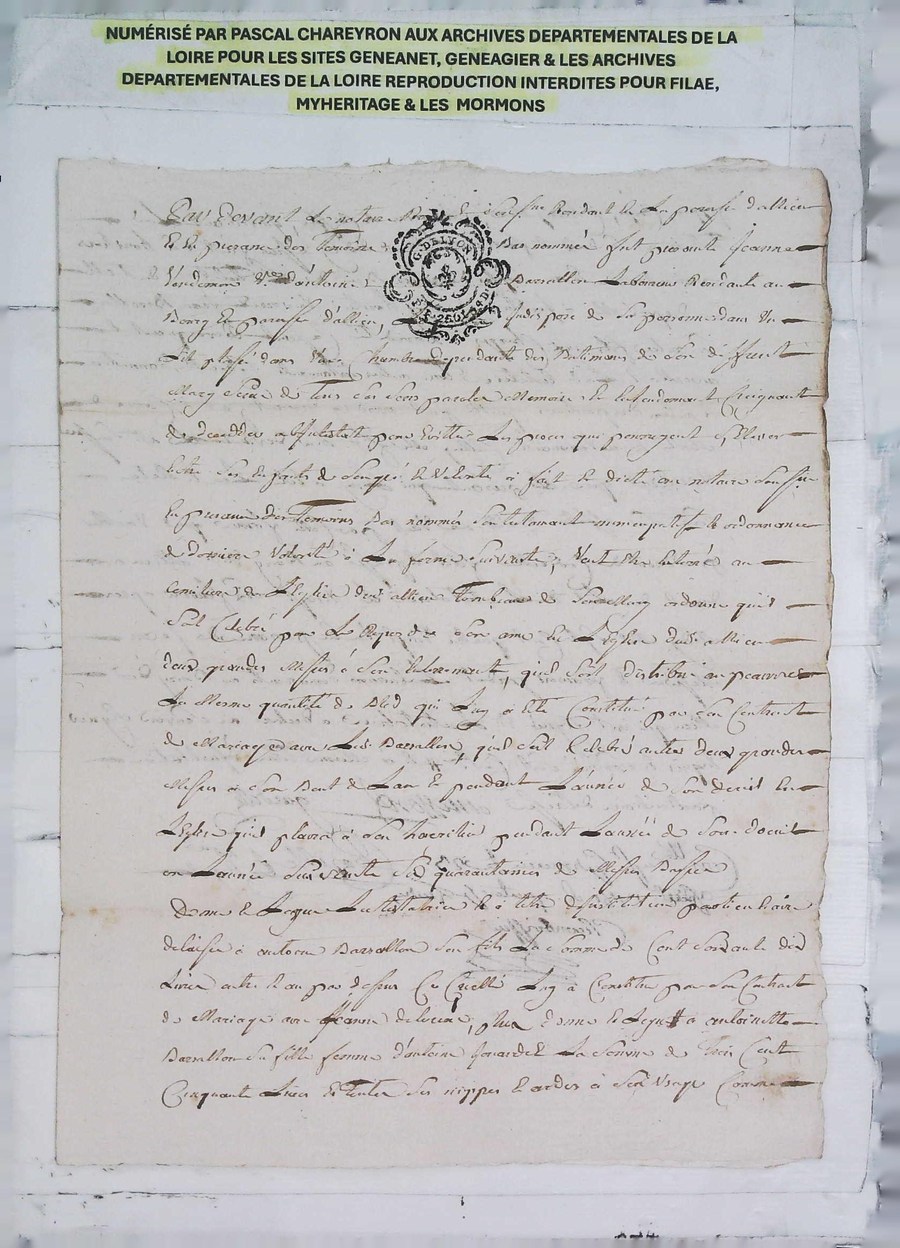 NUMÉRISÉ PAR PASCAL CHAREYRON AUX ARCHIVES DEPARTEMENTALES DE LA
LOIRE POUR LES SITES GENEANET, GENEAGIER & LES ARCHIVES
DEPARTEMENTALES DE LA LOIRE REPRODUCTION INTERDITES POUR FILAE,
MYHERITAGE & LES MORMONS
Par devant Le notaire Residant de La paroisse d'allieu
Et En presence des Temoins Bas nommés fut presente Jeanne
G. DE LYON
Vve d'antoine Barrallon Laboureur Residante au
Bourg Et paroisse d'allieu, de Sa personne dans Un
Lit plassé dans Une Chambre dependante des Batimens de Son deffunt
Mary Saine de Tous Ses Sens parolle Memoire Et Entendement Creignant
de decedder abIntestat pour Eviter Les proces qui pouroyent Eslever
Entre Ses Enfants de Son gré Et Volonté à fait Et dicté au notaire Soussigné
En presence des Temoins Bas nommés Son testament nuncupatif Et ordonnance
de dernière Volonté à La forme Suivante; Veut Etre Enterré au
Cemitiere de L'Eglise dud allieu Tombeau de Son Mary ordonne qu'il
Soit Celebré pour Le Repos de Son ame En L'Eglise dud allieu
deux grandes Messes à Son Enterrement, quil Soit distribué au peauvres
La Mesme quantité de Bled qui Luy a été Constitué par Son Contract
de Mariage avec Led. Barrallon, quil Soit Celebré autre deux grandes
Messes à Son Bout de L'an Et pendant L'année de Son deuil En
L'Eglise quil plaira à Son heritier pendant L'année de Son deuil
ou L'année Suivante quarantaines de Messes Basses
Donne Et Legue La testatrice Et à titre d'institution particuliere
delaisse à antoine Barrallon Son fils La Somme de Cent Soixante dix
Livres outre Et au par dessus Ce Luy à Constitué par Son Contract
de Mariage avec Jeanne , plus donne Et Legue a antoinette
Barrallon Sa fille femme d'antoine La Somme de Trois Cent
Cinquante Livres Et toutes Ses nippes Et ardes à Son Usage Comme